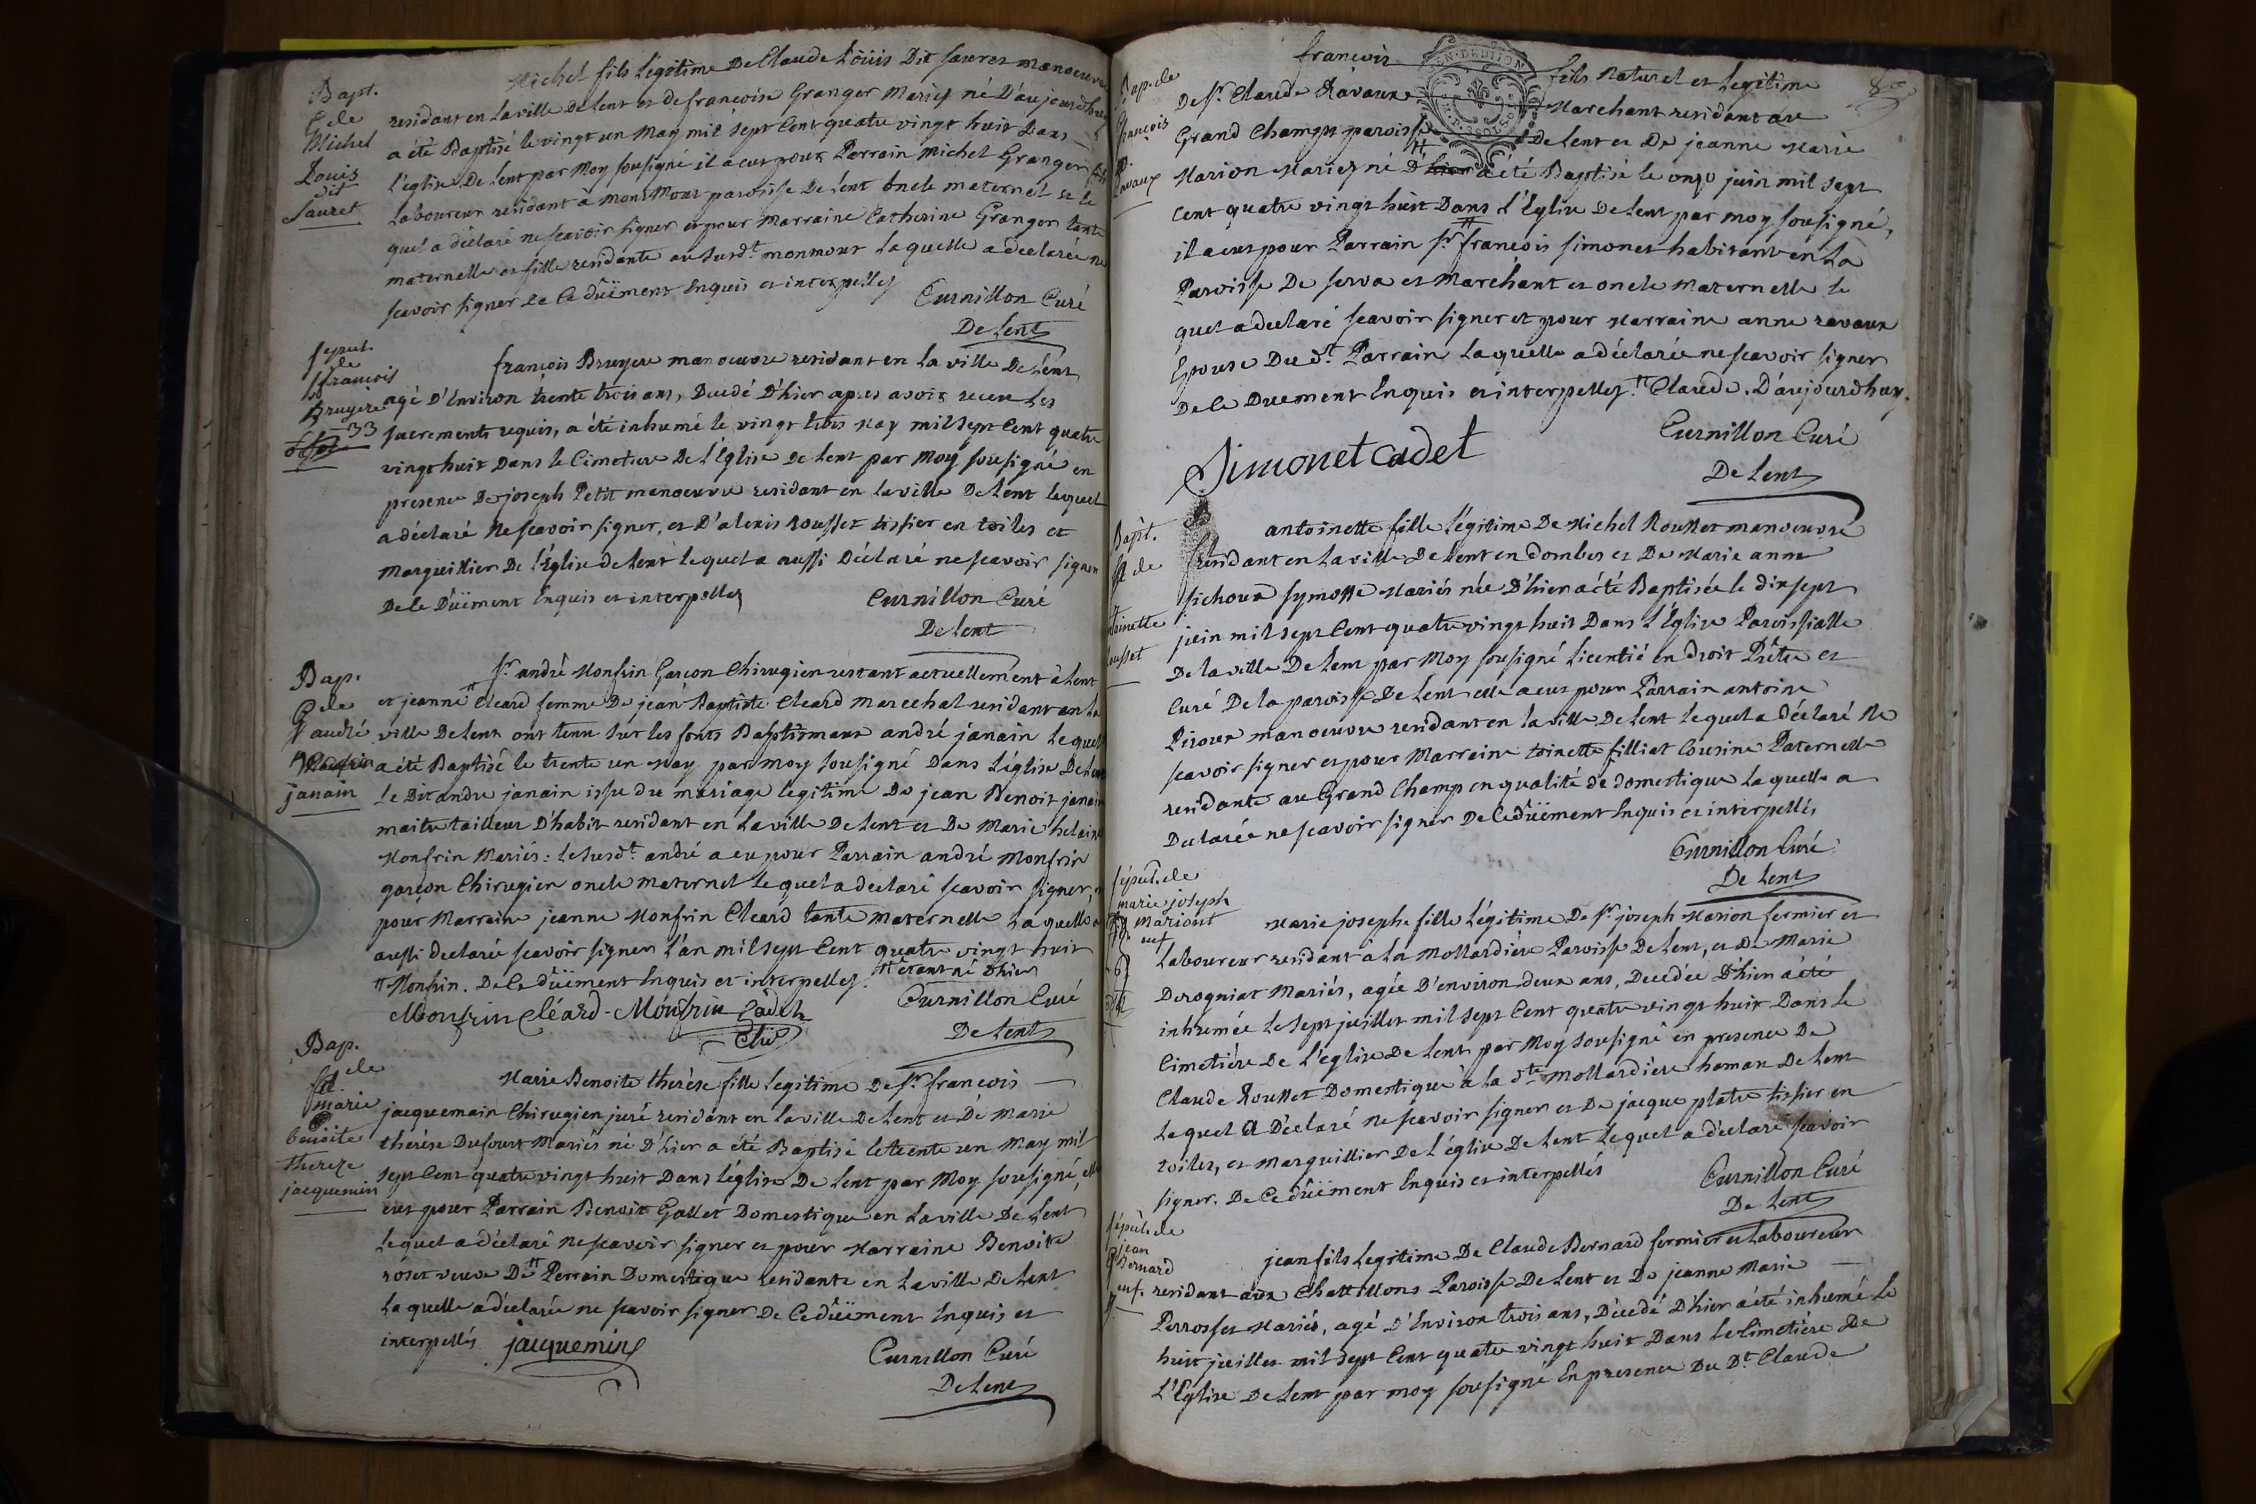 Bapt.
de
Michel
Louis
dit
Sauret
Michel fils légitime De Claude Loüis Dit sauret manoeuvre
residant en la ville de lent et de francoise Granger Mariés né D'aujourdhuy
a été Baptisé le vingt un May mil sept Cent quatre vingt huit Dans
l'eglise De lent par Moy sousigné il a eut pour Parrain Michel Granger fils
laboureur residant à monsMour paroisse De lent oncle maternel et le
quel a déclaré ne scavoir signer et pour marraine Catherine Granger tante
maternelle et fille residante au susdt. monmour la quelle a declarée ne
scavoir signer de Ce düement Enquis et interpellés
Curnillon Curé
De Lent
sepul.
de
francois
Bruyere
33
françois Bruyere manoeuvre residant en la ville De lent
agé D'Environ trente trois ans, Decedé D'hier apres avoir receu les
sacrements requis, a été inhumé le vingt trois May mil sept Cent quatre
vingt huit Dans le Cimetiere De l'Eglise De lent par Moy sousigné en
presence De joseph Petit manoeuvre residant en la ville De lent lequel
a déclaré Ne scavoir signer, et D'alexis rousset tissier en toiles et
Marguillier De l'Eglise de lent lequel a aussi Déclaré ne scavoir signer
De Ce Düement Enquis et interpellés
Curnillon Curé
De lent
Bap.
de
andré
janain
Sr. andré Monfrin Garcon Chirugien restant actuellement à lent
et jeanne Cleard femme De jean Baptiste Cleard marechal residant en la
ville De lent ont tenu sur les fonts Baptismaux andré janain lequel
a été Baptisé le trente un May par moy sousigné Dans l'église De lent
le Dit andré janain issu du mariage legitime De jean Benoit janain
maitre tailleur D'habit residant en la ville De lent et De Marie helaine
Monfrin Mariés : le susdt. andré a eu pour Parrain andré Monfrin
garçon Chirugien oncle maternel lequel a declaré scavoir signer, et
pour Marraine jeanne Monfrin Cleard tante maternelle la quelle a
aussi declaré scavoir signer l'an mil sept Cent quatre vingt huit
Monfrin. De Ce düement Enquis et interpellés. étant né D'hier
Monfrin Cléard - Monfrin Cadet
Curnillon Curé
De Lent
Bap.
de
marie
benoite
thereze
jacquemin
Marie Benoite therèse fille legitime De Sr. francois
jacquemain Chirugien juré residant en la ville De lent et De Marie
therèse Dufourt Mariés né D'hier a été Baptisé le trente un May mil
sept Cent quatre vingt huit Dans l'église De lent par Moy sousigné, elle
eut pour Parrain Benoit Gallet Domestique en la ville De lent
lequel a déclaré ne scavoir signer et pour Marraine Benoite
roset veuve De Perrain Domestique residante en la ville De lent
la quelle a déclarée ne scavoir signer De Ce düement Enquis et
interpellés
jacquemin
Curnillon Curé
De lent
Bap. de
francois
ravaux
francois fils Naturel et legitime
De Sr. Claude Ravaux Marchant residant au
Grand Champt paroisse De lent et De jeanne Marie
Marion Mariés né D'hier a été Baptisé le onze juin mil sept
Cent quatre vingt huit Dans l'Eglise De lent par moy sousigné,
il a eut pour Parrain Sr. francois simonet habitant en la
Paroisse De serva et Marchant et oncle Maternelle le
quel a declaré scavoir signer et pour Marraine anne ravaux
Epouse Du dt. Parrain la quelle a déclarée ne scavoir signer
De Ce Duement Enquis et interpellés. Claude. D'aujourdhuy.
Curnillon Curé
De Lent
Simonet cadet
Bapt.
de
antoinette
Rousset
antoinette fille légitime De Michel Rousset manoeuvre
residant en la ville De lent en dombes et De Marie anne
Pichoux Mariés née D'hier a été Baptisée le dix sept
juin mil sept Cent quatre vingt huit Dans l'Église Paroissialle
De la ville De lent par Moy sousigné licentié en droit Prêtre et
Curé De la paroisse De lent elle a eut pour Parrain antoine
Piroux manoeuvre residant en la ville De lent lequel a déclaré Ne
scavoir signer et pour Marraine toinette filliat Cousine Paternelle
residante au Grand Champ en qualité de domestique la quelle a
Declarée ne scavoir signer De Ce düement Enquis et interpellés
Curnillon Curé
De Lent
sépul. de
marie joseph
Mariont
enf.
Marie josephe fille légitime De Sr. joseph Marion fermier et
Laboureur residant à la Mollardière Paroisse De lent, et De Marie
Derogniat Mariés, agée D'environ deux ans, Decedée D'hier a été
inhumée le sept juillet mil sept Cent quatre vingt huit Dans le
Cimetière De l'eglise De lent par Moy sousigné en presence De
Claude Rousset Domestique à la dte. Mollardière hamau De lent
lequel a Déclaré ne scavoir signer et De jacque platre tissier en
toiles, et Marguillier De l'église De lent lequel a déclaré scavoir
signer. De Ce düement Enquis et interpellés
Curnillon Curé
De Lent
sépul. de
jean
Bernard
enf.
jean fils legitime De Claude Bernard fermier et Laboureur
residant aux Chattillons Paroisse De lent et De jeanne Marie
Perrosset Mariés, agé D'Environ trois ans, Décedé D'hier a été inhumé le
huit juillet mil sept Cent quatre vingt huit Dans le Cimetière De
l'Eglise De lent par moy sousigné En presence Du Dt. Claude